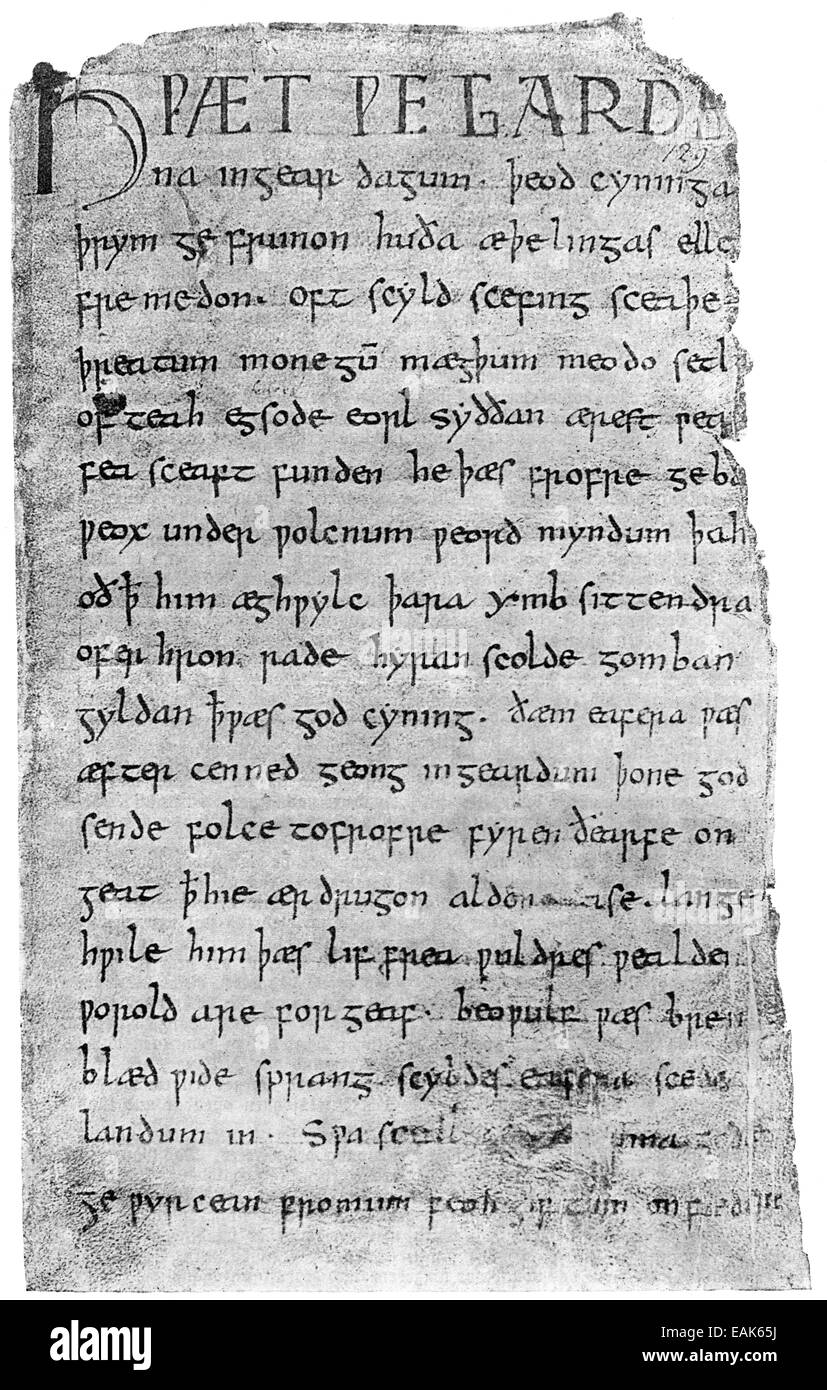 HǷÆT ǷE GARDE
129
na ingear dagum. þeod cyninga
þrym ge frunon huða æþelingas elle
fre medon. oft scyld scefing sceaþe
þreatum monegū mægþum meodo setl
of teah egsode eorl syððan ærest ƿea
fea sceaft funden he þæs frofre geba
ƿeox under ƿolcnum ƿeorð myndum þah
oð ꝥ him æghƿylc þara ymb sittendra
ofer hron rade hyran scolde gomban
gyldan ꝥ ƿæs god cyning. ðæm eafera ƿæs
æfter cenned geong ingeardum þone god
sende folce tofrofre fyren ðearfe on
geat ꝥ hie ær drugon aldor ase. lange
hƿile him þæs lif frea ƿuldres ƿealdend
ƿorold are for geaf. beoƿulf ƿæs breme
blæd ƿide sprang scyldes eafera scede
landum in. Sƿa sceal
ge ƿyrcean fromum feoh giftum on fæder
alamy
Image ID: EAK65J
www.alamy.com